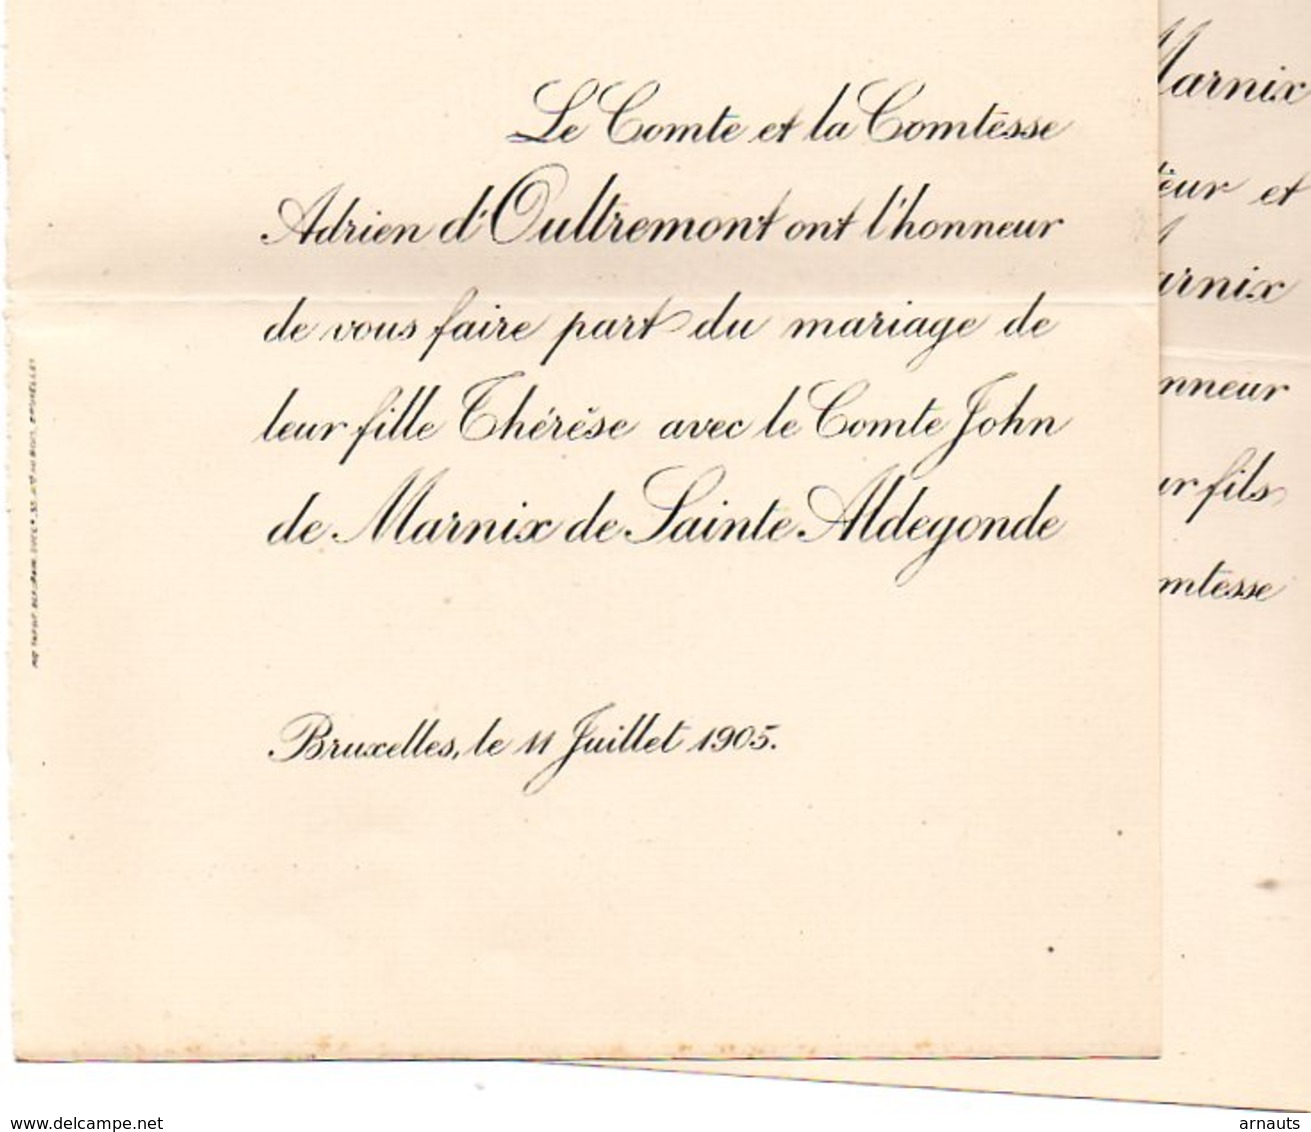 Le Comte et la Comtesse
Adrien d'Oultremont ont l'honneur
de vous faire part du mariage de
leur fille Thérèse avec le Comte John
de Marnix de Sainte Aldegonde
Bruxelles, le 11 Juillet 1905.
Marnix
teur et
arnix
nneur
ur fils
mtesse
www.delcampe.net
arnauts